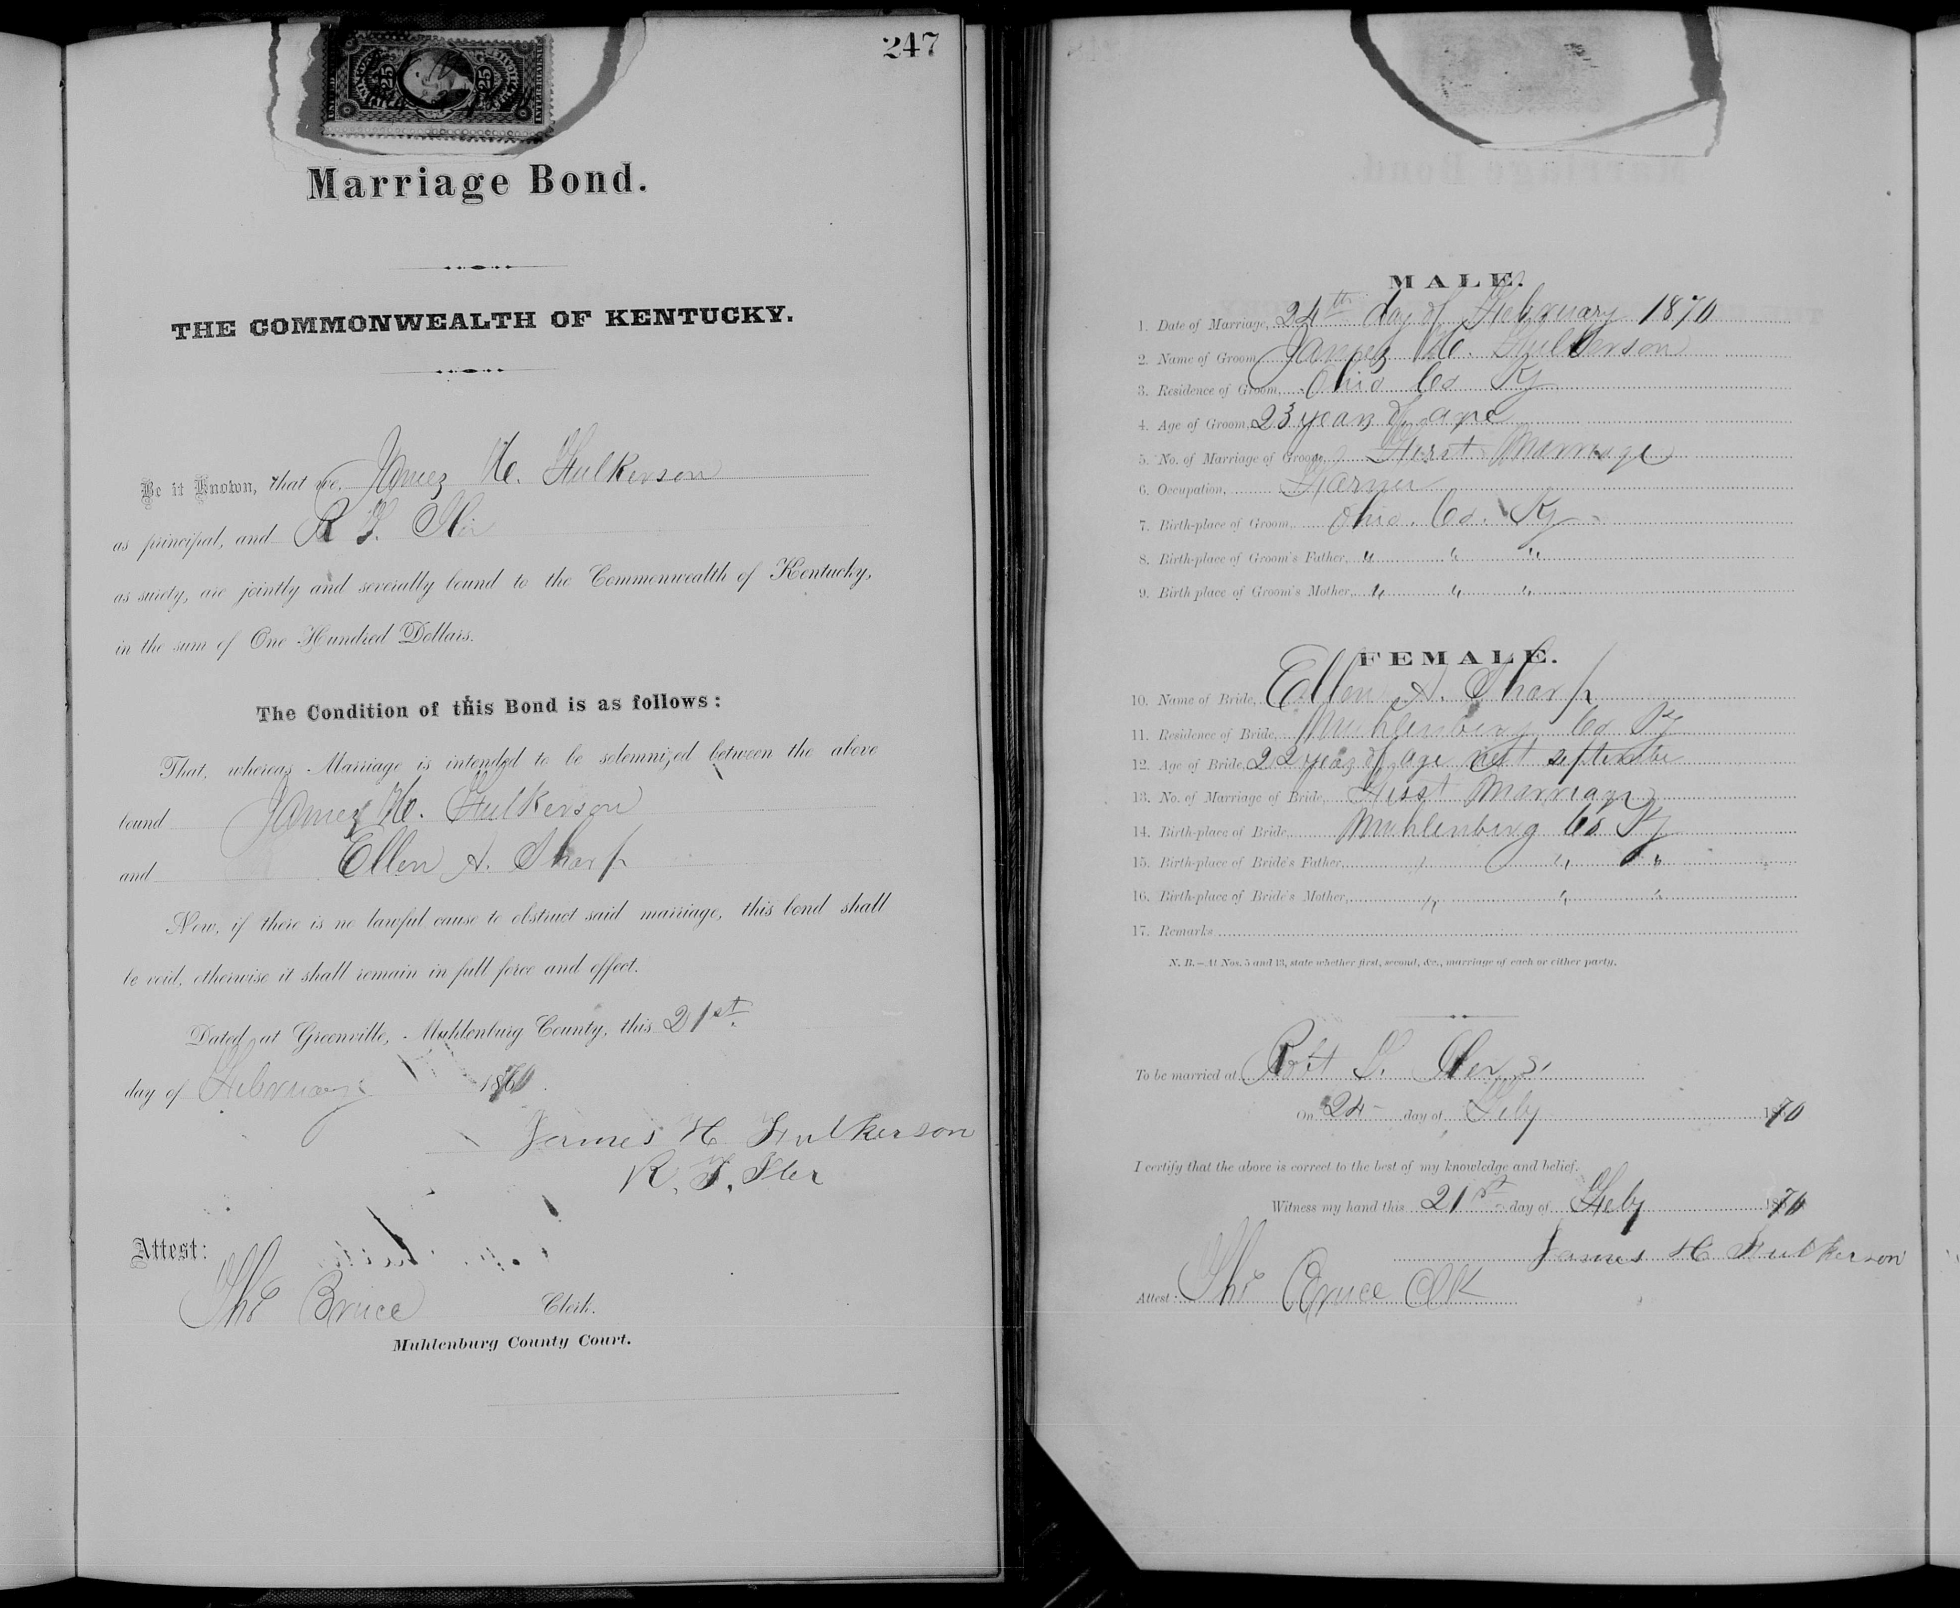 247
25 25
Marriage Bond.
THE COMMONWEALTH OF KENTUCKY.
Be it Known, that we, James H. Fulkerson
as principal, and R F. Iler
as surety, are jointly and severally bound to the Commonwealth of Kentucky,
in the sum of One Hundred Dollars.
The Condition of this Bond is as follows:
That, whereas Marriage is intended to be solemnized between the above
bound James H. Fulkerson
and Ellen A. Sharp
Now, if there is no lawful cause to obstruct said marriage, this bond shall
be void, otherwise it shall remain in full force and effect.
Dated at Greenville, Muhlenburg County, this 21st
day of February 1870.
James H Fulkerson
R. F. Iler
Attest:
Tho Bruce Clerk.
Muhlenburg County Court.
MALE.
1. Date of Marriage, 24th day of February 1870
2. Name of Groom, James H. Fulkerson
3. Residence of Groom, Ohio Co Ky
4. Age of Groom, 23 years of age
5. No. of Marriage of Groom, First Marriage
6. Occupation, Farmer
7. Birth-place of Groom, Ohio. Co. Ky
8. Birth-place of Groom's Father, " " "
9. Birth place of Groom's Mother, " " "
FEMALE.
10. Name of Bride, Ellen A. Sharp
11. Residence of Bride, Muhlenberg Co Ky
12. Age of Bride, 22 years of age next september
13. No. of Marriage of Bride, First Marriage
14. Birth-place of Bride Muhlenberg Co Ky
15. Birth-place of Bride's Father, " " "
16. Birth-place of Bride's Mother, " " "
17. Remarks
N. B.—At Nos. 5 and 13, state whether first, second, &c., marriage of each or either party.
To be married at Robt F. Ilers.
On 24 day of Feby 1870
I certify that the above is correct to the best of my knowledge and belief.
Witness my hand this 21st day of Feby 1870
James H Fulkerson
Attest: Tho Bruce Clk